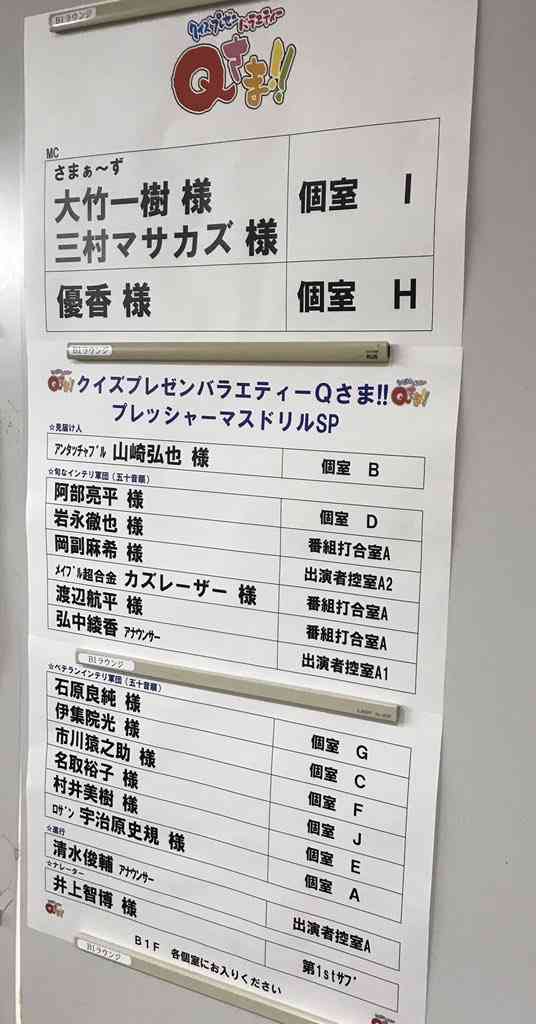 B1ラウンジ
クイズプレゼンバラエティー
Qさま!!
MC
さまぁ～ず
大竹一樹 様
三村マサカズ 様
個室 I
優香 様
個室 H
B1ラウンジ
クイズプレゼンバラエティーQさま!!
プレッシャーマスドリルSP
☆見届け人
アンタッチャブル 山崎弘也 様
個室 B
☆旬なインテリ軍団（五十音順）
阿部亮平 様
個室 D
岩永徹也 様
番組打合室A
岡副麻希 様
出演者控室A2
メイプル超合金 カズレーザー 様
番組打合室A
渡辺航平 様
番組打合室A
弘中綾香 アナウンサー
出演者控室A1
B1ラウンジ
☆ベテランインテリ軍団（五十音順）
石原良純 様
個室 G
伊集院光 様
個室 C
市川猿之助 様
個室 F
名取裕子 様
個室 J
村井美樹 様
個室 E
ロザン 宇治原史規 様
個室 A
☆進行
清水俊輔 アナウンサー
出演者控室A
☆ナレーター
井上智博 様
第1stサブ
B1F 各個室にお入りください
B1ラウンジ